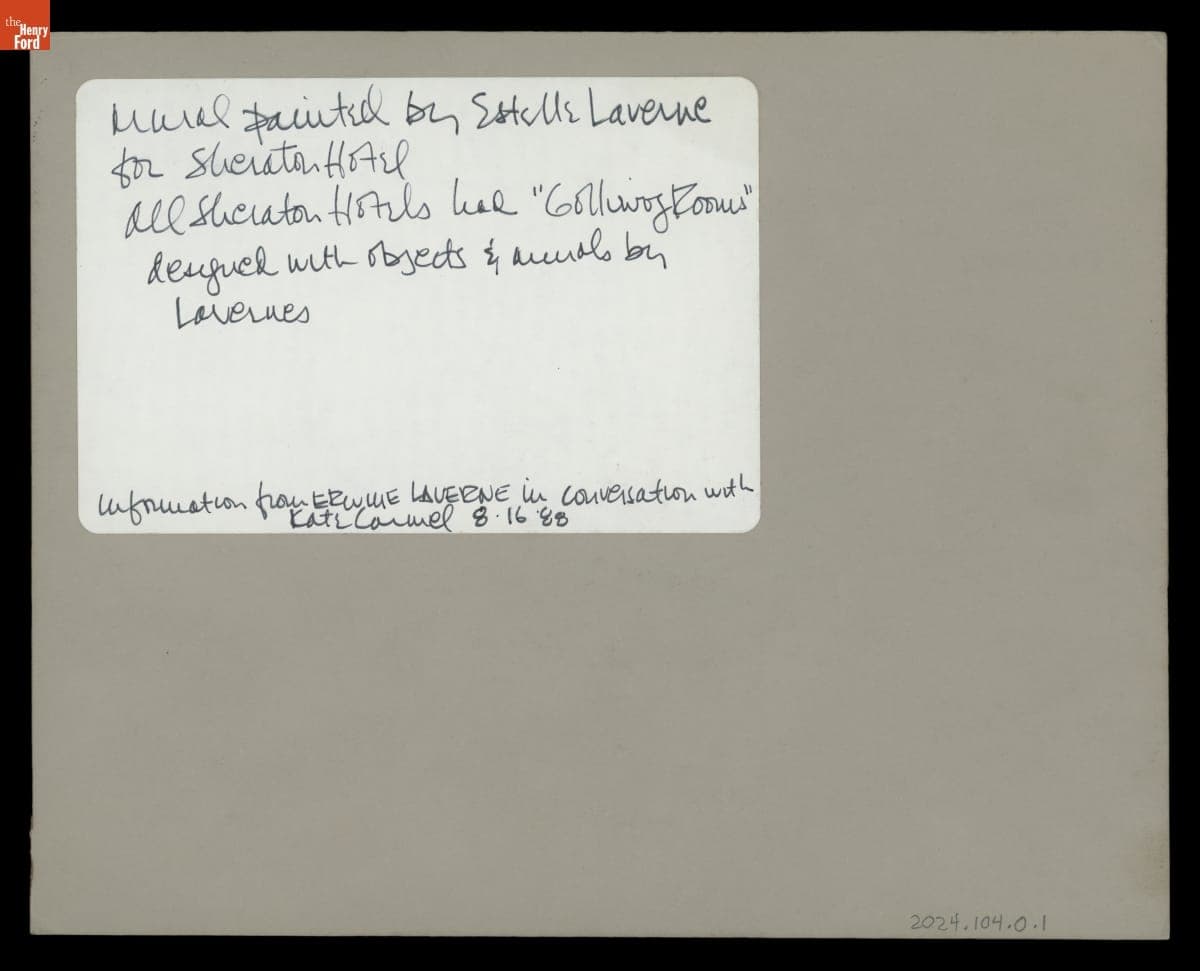 the
Henry
Ford
Mural painted by Estelle Laverne
for Sheraton Hotel
All Sheraton Hotels had "Golliwog Rooms"
designed with objects & murals by
Lavernes
Information from ERWINE LAVERNE in conversation with
Kate Carmel 8.16.88
2024.104.0.1